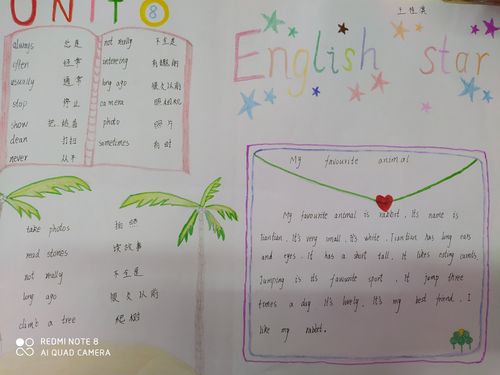 UNIT 8
always 总是 not really 不全是
often 经常 interesting 有趣的
usually 通常 long ago 很久以前
stop 停止 camera 照相机
show 把给看 photo 照片
clean 打扫 sometimes 有时
never 从不
take photos 拍照
read stories 读故事
not really 不全是
long ago 很久以前
climb a tree 爬树
English star
My favourite animal
My favourite animal is rabbit. Its name is
Tiantian. It's very small. It's white. Tiantian has long ears
and eyes. It has a short tail. It likes eating carrots.
Jumping is its favourite sport. It jump three
times a day. It's lovely. It's my best friend. I
like my rabbit.
REDMI NOTE 8
AI QUAD CAMERA